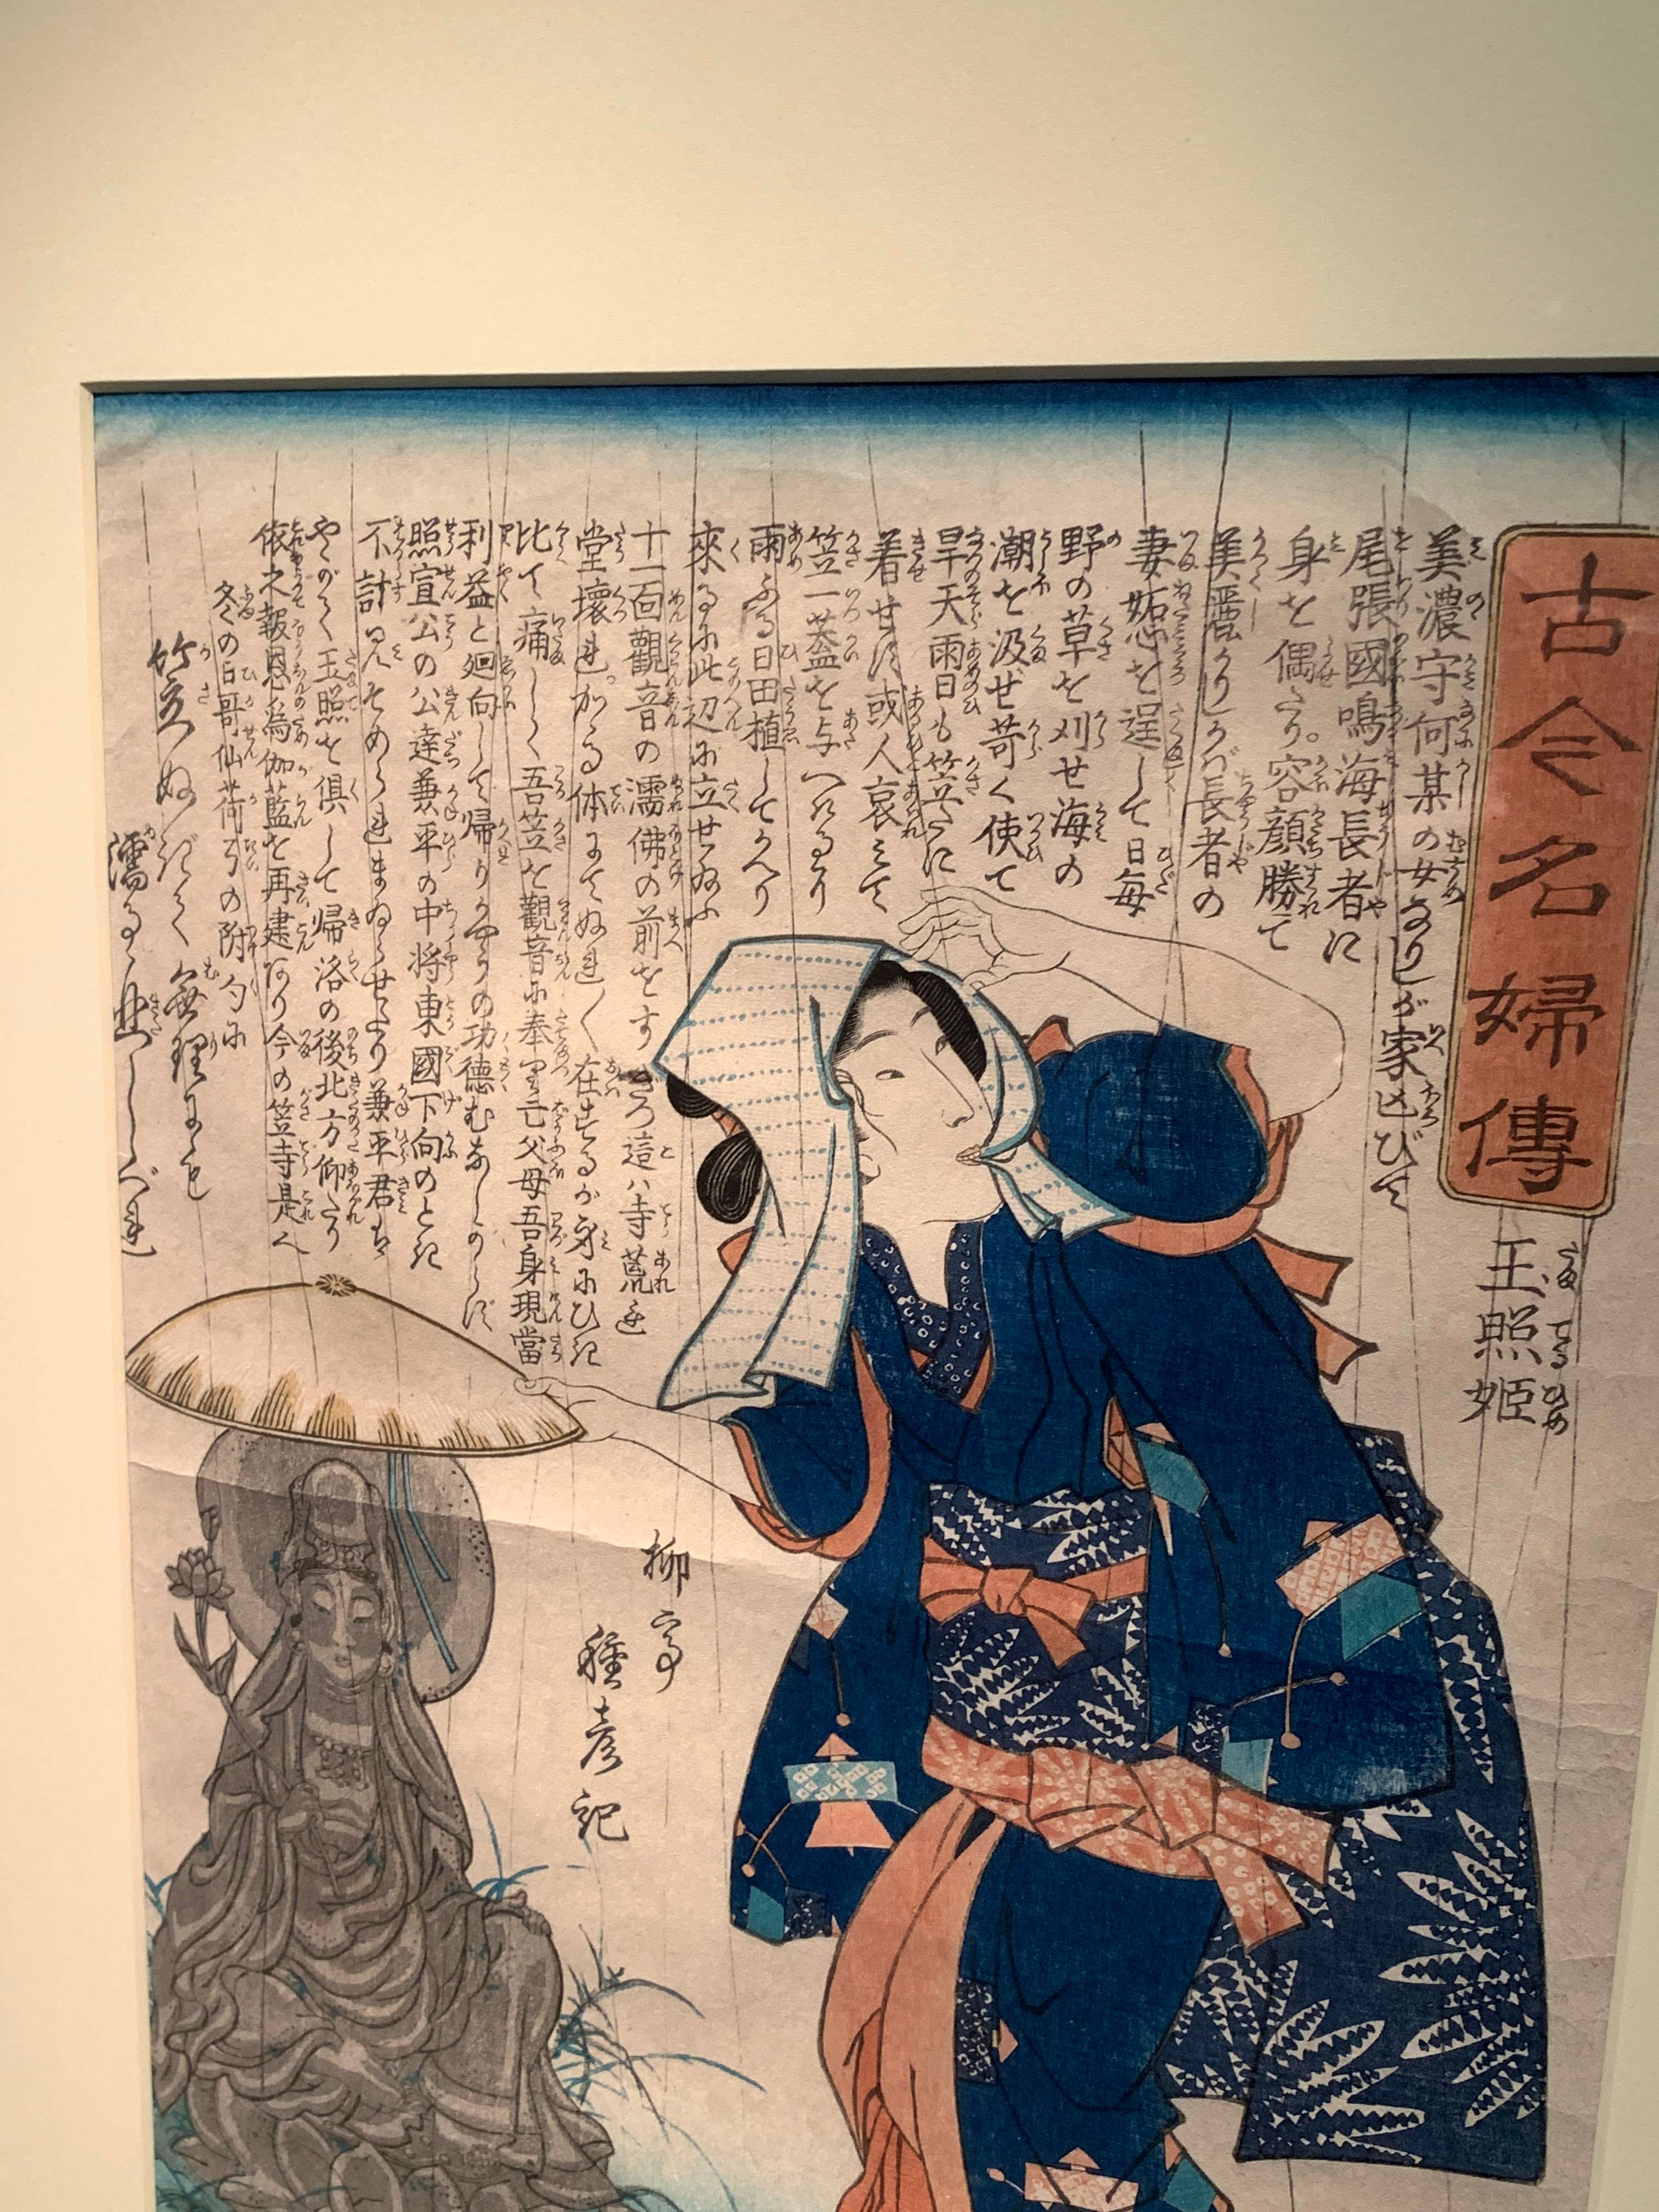 古今名婦傳
玉照姫
たまてるひめ
美濃守何某の女なりしが家亡びて
尾張國鳴海長者に
身を偶たり。容顔勝て
美麗かりしかバ長者の
妻妬を逞して日毎
野の草を刈せ海の
潮を汲せ苛く使て
旱天雨日も笠だに
着せず或人哀ミて
笠一蓋を与へけるより
雨ふる日田植してかへり
來るに此辺に立せ給ふ
十一面觀音の濡佛の前をすぎつ這ハ寺荒
堂壊れかゝる体にてぬれ〳〵在するが身にひき
比て痛しく吾笠を觀音に奉里亡父母吾身現當
利益と廻向して帰りけりその功徳むなしからず
照宣公の公達兼平の中将東國下向のとき
不計見そめられまゐらせたり兼平君は
やがて玉照を倶して帰洛の後北方仰たり
依之報恩の為伽藍を再建あり今の笠寺是へ
冬の日哥仙荷兮の附句に
笠ぬぎて無理にも
濡る北しぐれ
柳亭
種彦記